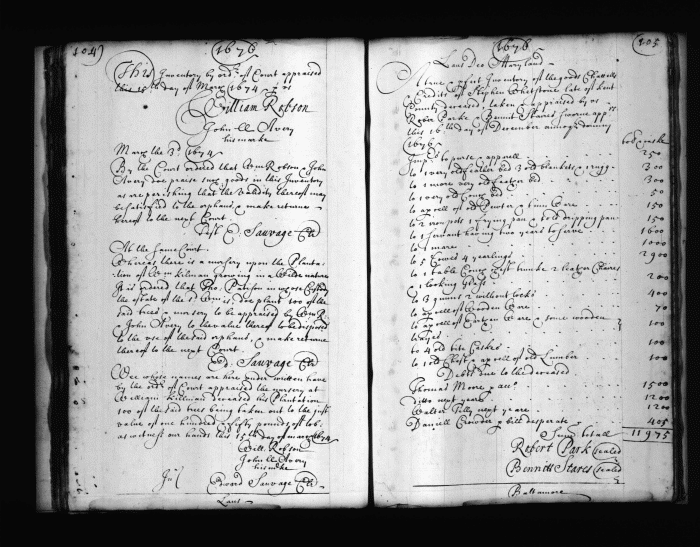 104)
1676
This Inventory by ordr of Court appraised
this 15th day of Mar: 1674 by us
William Robson
John Avery
his marke
Mar: the 3d 1674
By the Court ordered that Wm Robson & John
Avery doe praise such goods in this Inventory
as are perishing that the Validity thereof may
be satisfied to the orphans & make returne
thereof to the next Court
Ed. Sauvage Clk
At the same Court
Whereas there is a nursery upon the Planta-
tion of Wm Kilman growing in a Wilde nature
It is ordered that
the estate of the sd Wm is, doe plant 100 of the
said trees & nursery to be appraised by Wm R
& John Avery to the value thereof to be disposed
to the use of the said orphans, & make returne
thereof to the next Court
Ed. Sauvage Clk
Wee whose names are here under written have
by the ordr of Court appraised the nursery at
William Killman deceased his Plantation
100 of the said trees being taken out to the just
value of one hundred & fifty pounds of tob:
as witness our hands this 15th day of mar: 1674
Will. Robson
John Avery
his marke
Edward Sauvage Clk
Laus
1676
105
Laus Deo Maryland
A true & perfect Inventory of the goods Chattells
& Credits of Stephen Whetstone late of Kent
County deceased, taken & appraised by us
Robt Parke & Bennit Stares sworne apprs
this 16th day of December annoq domini
1676
to purse & apparell 250
to 1 very old feather bed 3 old blankets & rugg 300
to 1 more very old feather bed 300
to 1 very old bed 50
to a parcell of old Pewter & tinn Ware 150
to 2 iron pots 1 frying pan & old dripping pan 150
to 1 servant having two years to serve 1600
to 1 mare 1000
to 5 Cowes 4 yearlings 2900
to 1 table 2 leather Chaires
1 looking Glass 200
to 3 gunns 2 without locks 400
to a parcell of Wooden Ware 70
to a parcell of Earthen Ware & some wooden
trayes 100
to 4 old tite Caskes 100
to 1 old Chest & a parcell of old Lumber 100
Debts due to the deceased
Thomas More p acct 1500
ditto next yeare 1200
Walter Tilly next yeare 1200
Daniell Crowder p bill desperate 405
Sum totall 11975
Robert Park (sealed
Bennett Stares (sealed
Baltamore